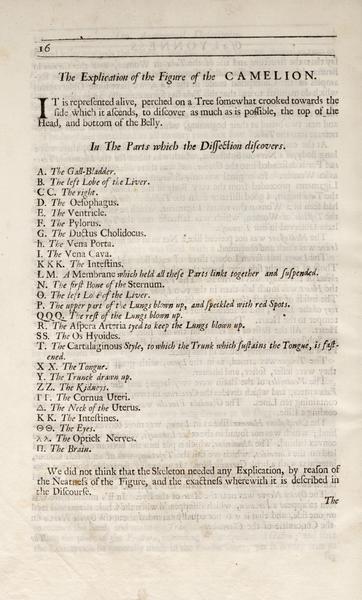 16
The Explication of the Figure of the CAMELION.
IT is repreſented alive, perched on a Tree ſomewhat crooked towards the
ſide which it aſcends, to diſcover as much as is poſſible, the top of the
Head, and bottom of the Belly.
In The Parts which the Diſſection diſcovers.
A. The Gall-Bladder.
B. The left Lobe of the Liver.
C C. The right.
D. The Oeſophagus.
E. The Ventricle.
F. The Pylorus.
G. The Ductus Cholidocus.
h. The Vena Porta.
I. The Vena Cava.
K K K. The Inteſtins.
L M. A Membrane which held all theſe Parts links together and ſuſpended.
N. The firſt Bone of the Sternum.
O. The left Lobe of the Liver.
P. The upper part of the Lungs blown up, and ſpeckled with red Spots.
QQQ. The reſt of the Lungs blown up.
R. The Aſpera Arteria tyed to keep the Lungs blown up.
SS. The Os Hyoides.
T. The Cartalaginous Style, to which the Trunk which ſuſtains the Tongue, is faſt-
ened.
X X. The Tongue.
Y. The Trunck drawn up.
Z Z. The Kidneys.
Γ Γ. The Cornua Uteri.
Δ. The Neck of the Uterus.
K K. The Inteſtines.
Θ Θ. The Eyes.
λ λ. The Optick Nerves.
Π. The Brain.
We did not think that the Skeleton needed any Explication, by reaſon of
the Neatneſs of the Figure, and the exactneſs wherewith it is deſcribed in
the Diſcourſe.
The